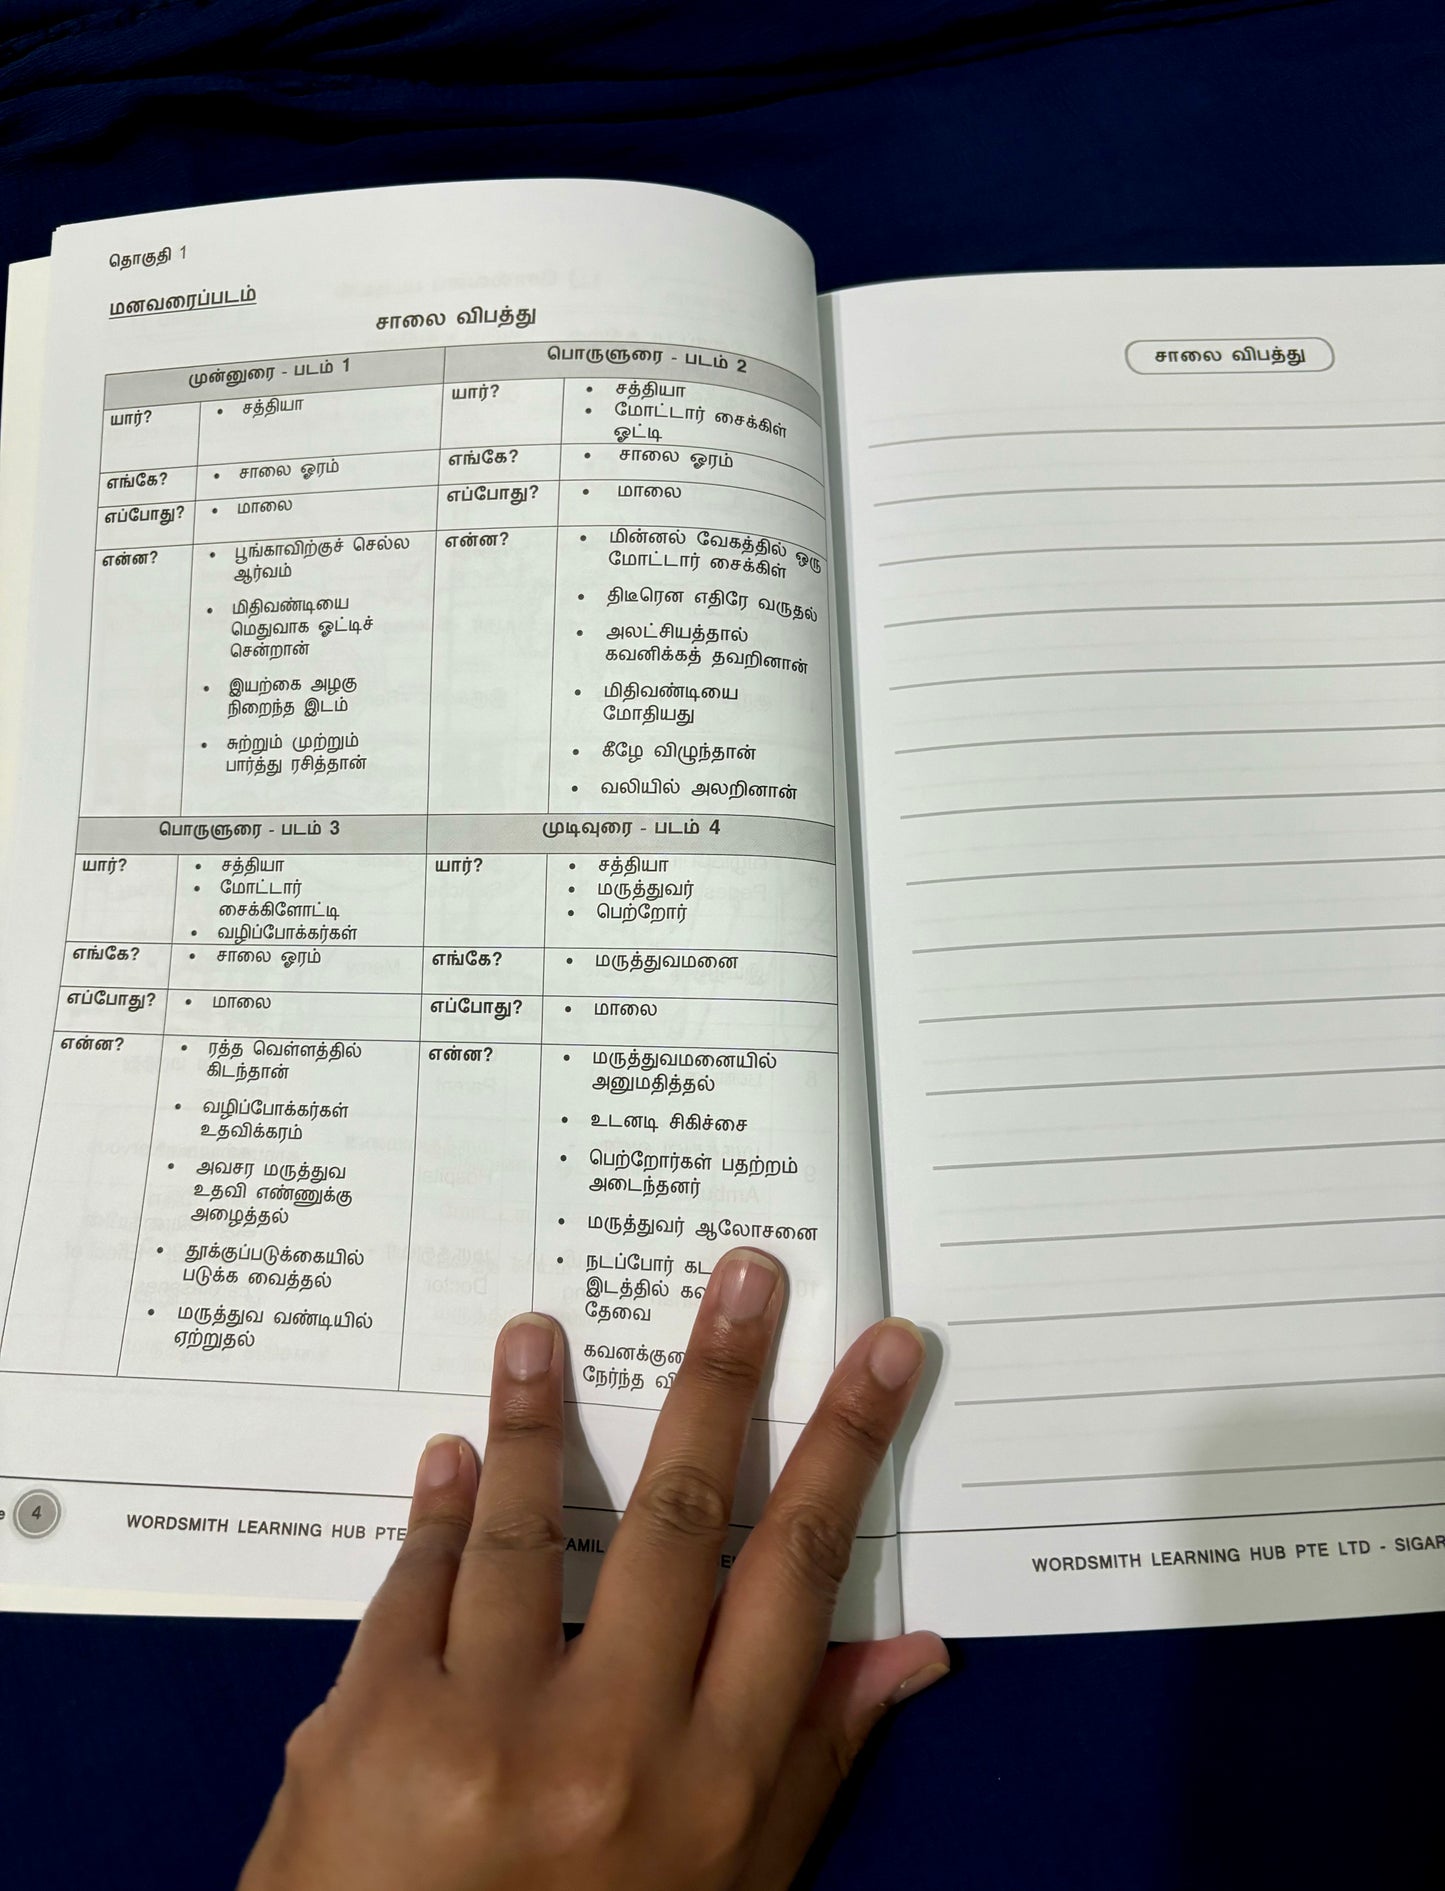 தொகுதி 1
மனவரைப்படம்
சாலை விபத்து
முன்னுரை - படம் 1
யார்?
• சத்தியா
எங்கே?
• சாலை ஓரம்
எப்போது?
• மாலை
என்ன?
• பூங்காவிற்குச் செல்ல
ஆர்வம்
• மிதிவண்டியை
மெதுவாக ஓட்டிச்
சென்றான்
• இயற்கை அழகு
நிறைந்த இடம்
• சுற்றும் முற்றும்
பார்த்து ரசித்தான்
பொருளுரை - படம் 2
யார்?
• சத்தியா
• மோட்டார் சைக்கிள்
ஓட்டி
எங்கே?
• சாலை ஓரம்
எப்போது?
• மாலை
என்ன?
• மின்னல் வேகத்தில் ஒரு
மோட்டார் சைக்கிள்
• திடீரென எதிரே வருதல்
• அலட்சியத்தால்
கவனிக்கத் தவறினான்
• மிதிவண்டியை
மோதியது
• கீழே விழுந்தான்
• வலியில் அலறினான்
பொருளுரை - படம் 3
யார்?
• சத்தியா
• மோட்டார்
சைக்கிளோட்டி
• வழிப்போக்கர்கள்
எங்கே?
• சாலை ஓரம்
எப்போது?
• மாலை
என்ன?
• ரத்த வெள்ளத்தில்
கிடந்தான்
• வழிப்போக்கர்கள்
உதவிக்கரம்
• அவசர மருத்துவ
உதவி எண்ணுக்கு
அழைத்தல்
• தூக்குப்படுக்கையில்
படுக்க வைத்தல்
• மருத்துவ வண்டியில்
ஏற்றுதல்
முடிவுரை - படம் 4
யார்?
• சத்தியா
• மருத்துவர்
• பெற்றோர்
எங்கே?
• மருத்துவமனை
எப்போது?
• மாலை
என்ன?
• மருத்துவமனையில்
அனுமதித்தல்
• உடனடி சிகிச்சை
• பெற்றோர்கள் பதற்றம்
அடைந்தனர்
• மருத்துவர் ஆலோசனை
• நடப்போர்
இடத்தில்
தேவை
நேர்ந்த
4
WORDSMITH LEARNING HUB PTE
சாலை விபத்து
WORDSMITH LEARNING HUB PTE LTD - SIGAR